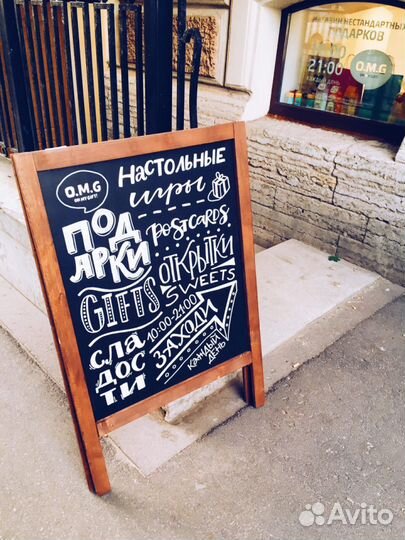 МАГАЗИН НЕСТАНДАРТНЫХ
ПОДАРКОВ
21:00
КАЖДЫЙ ДЕНЬ
O.M.G
O.M.G
OH MY GIFT!
НАСТОЛЬНЫЕ
ИГРЫ
ПОДАРКИ
POSTCARDS
ОТКРЫТКИ
GIFTS
SWEETS
10:00-21:00
СЛАДОСТИ
ЗАХОДИ
КАЖДЫЙ
ДЕНЬ
Avito